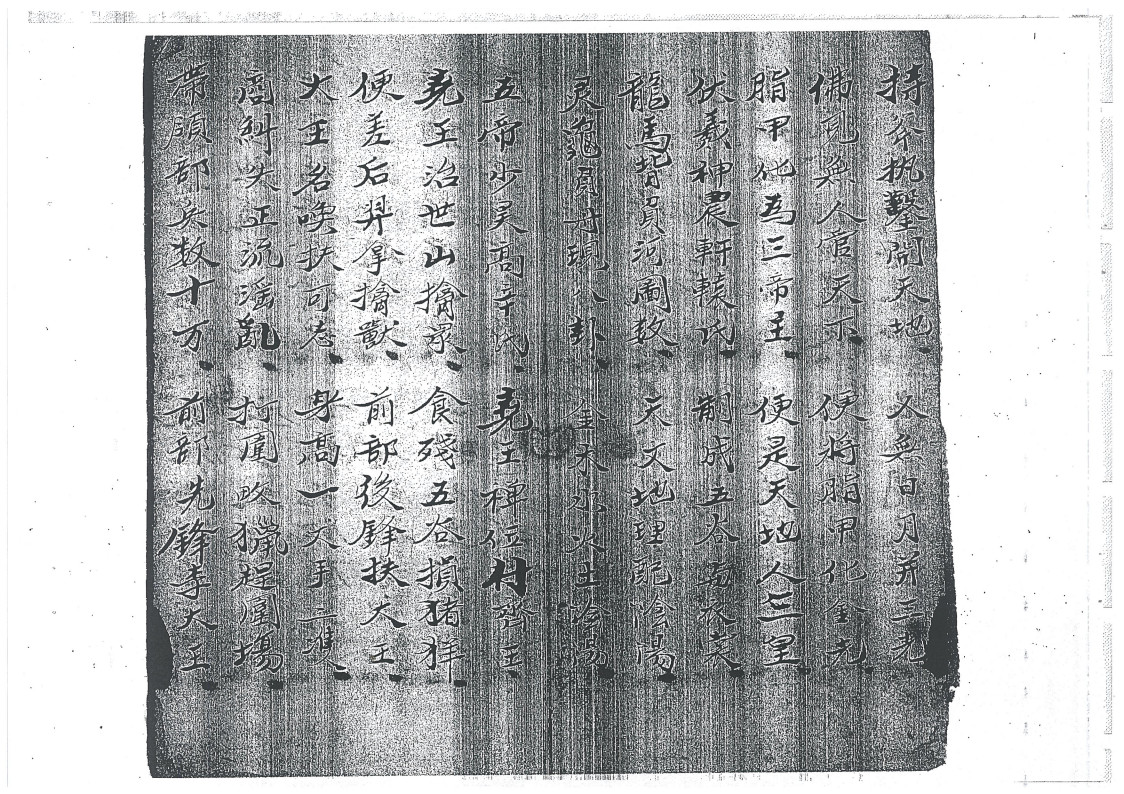 持斧执鑿開天地 又無日月并三光
佛無人管天下 便将脂甲化金光
脂甲化為三帝主 便是天地人三皇
伏羲神農軒轅氏 制成五谷衣裳
龍馬背負河圖数 天文地理配阴陽
灵龜負丹現八卦 金木水火土阴陽
五帝少昊高辛氏 堯王禪位付齊王
堯王治世山擒家 食殘五谷損猪羊
便差后羿拿擒獸 前部後鋒扶大王
大王名喚扶可志 身高一丈手二双
商糾失正流滛亂 打圍畋獵趕圍場
帶領部兵数十万 前部先鋒李大王